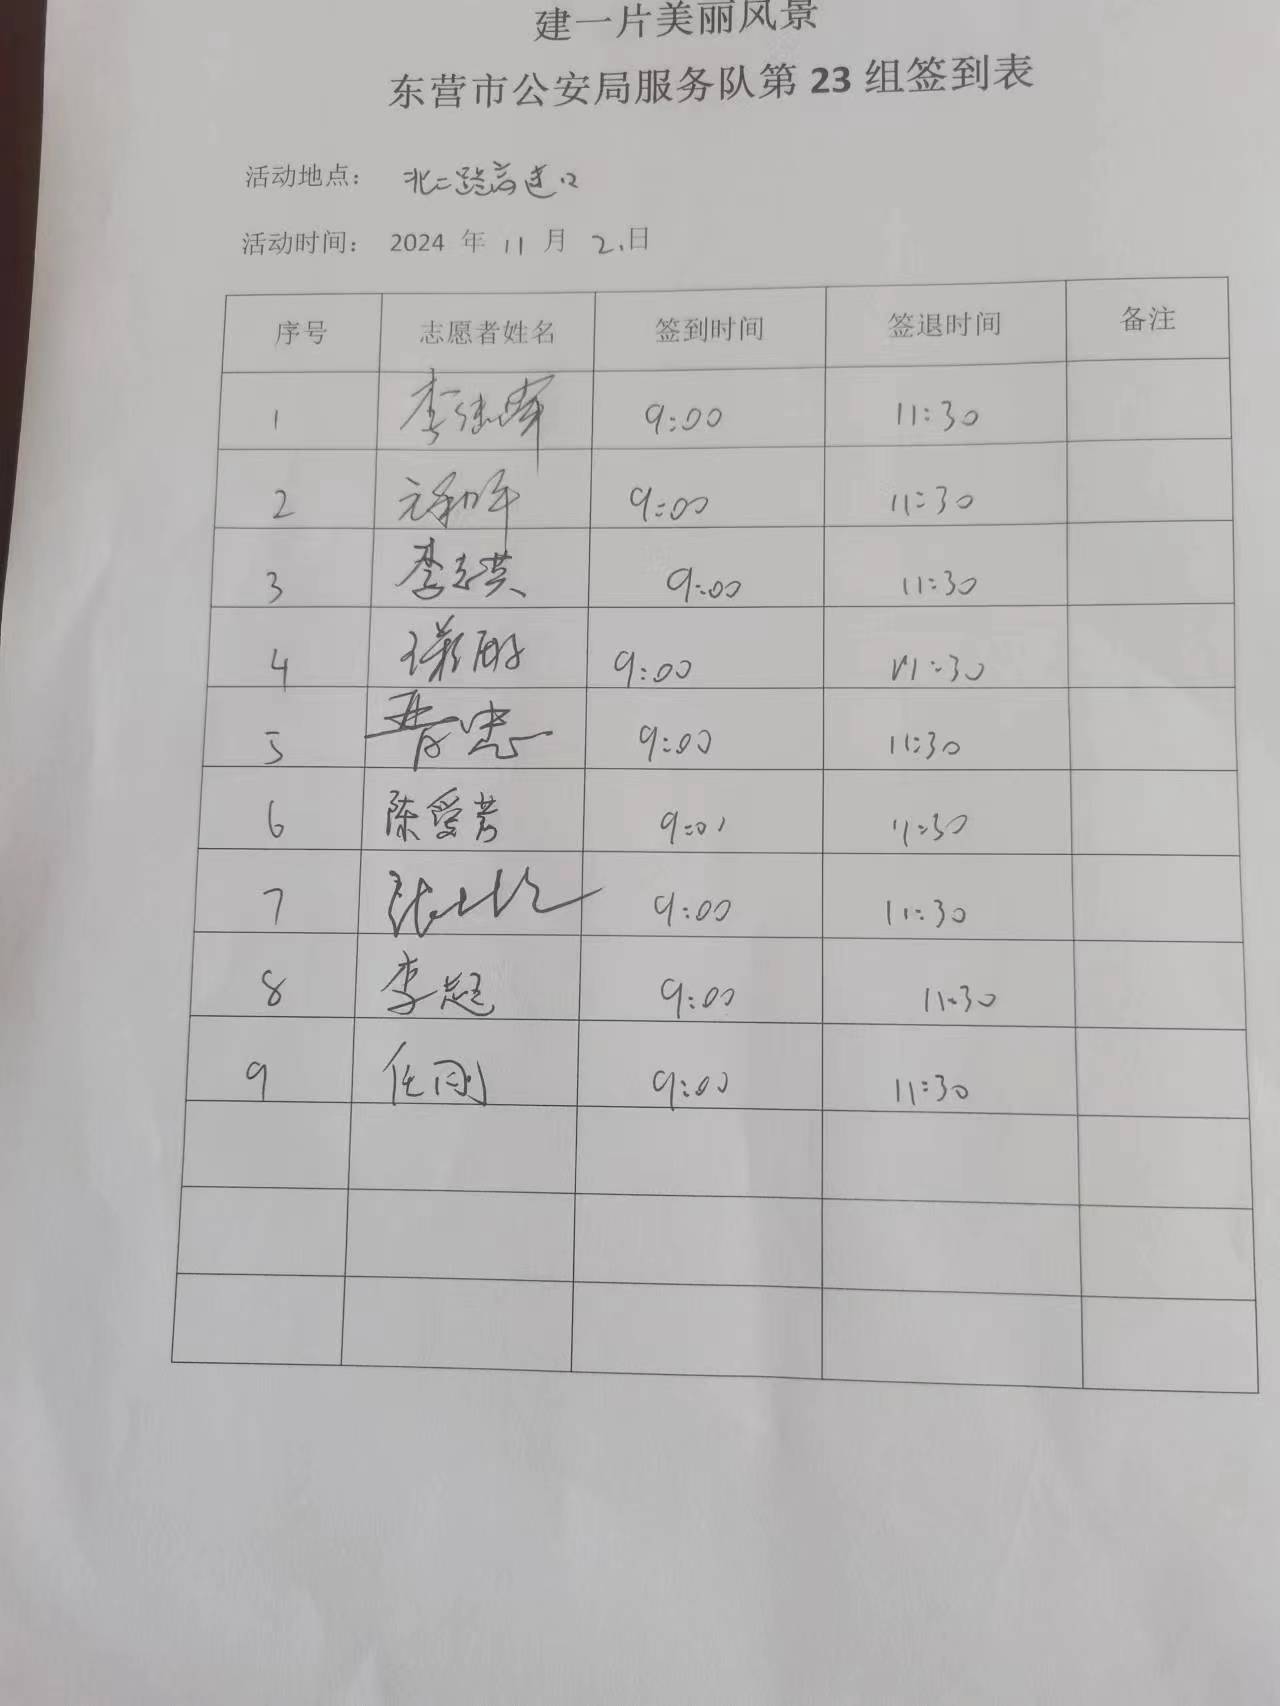 建一片美丽风景
东营市公安局服务队第 23 组签到表
活动地点： 北二路高速口
活动时间： 2024 年 11 月 2 日
序号 志愿者姓名 签到时间 签退时间 备注
1 9:00 11:30
2 9:00 11:30
3 李志洪 9:00 11:30
4 9:00 11:30
5 9:00 11:30
6 陈爱芳 9:01 11:30
7 9:00 11:30
8 李超 9:00 11:30
9 任刚 9:00 11:30